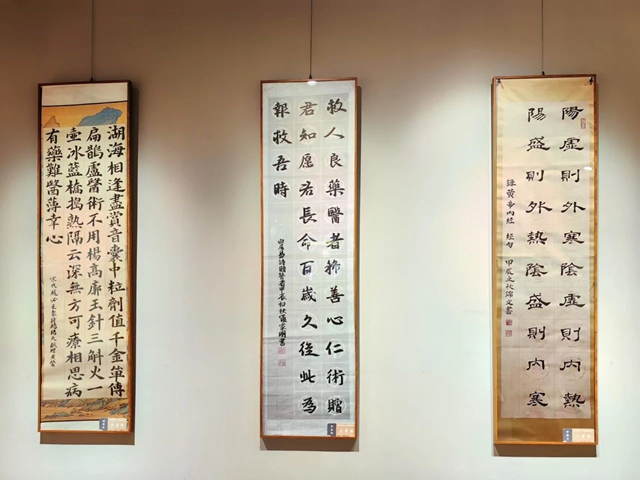 湖海相逢盡賞音囊中粒劑值千金單傳
扁鵲盧醫術不用楊高廓玉針三斛火一
壺冰籃橋搗熱隔云深無方可療相思病
有藥難醫薄幸心
宋代趙必
救人良藥醫者善心仁術贈
君知愿君長命百歲久從此為
報救吾時
甲辰初秋
陽虛則外寒陰虛則內熱
陽盛則外熱陰盛則內寒
錄黃帝內經 經句 甲辰之秋 文書